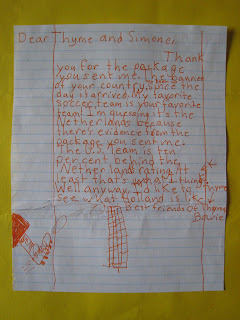 Dear Thyme and Simone,
Thank
you for the package
you sent me. The banner
of your country, since the
day it arrived, my favorite
soccer team is your favorite
team! I'm guessing it's the
Netherlands because
there's evidence from the
package you sent me.
The U.S. team is ten
percent behind the
Netherlands rating. At
least that's what I think.
Well anyway, I'd like to
see what Holland is like
Best friends Of Thyme